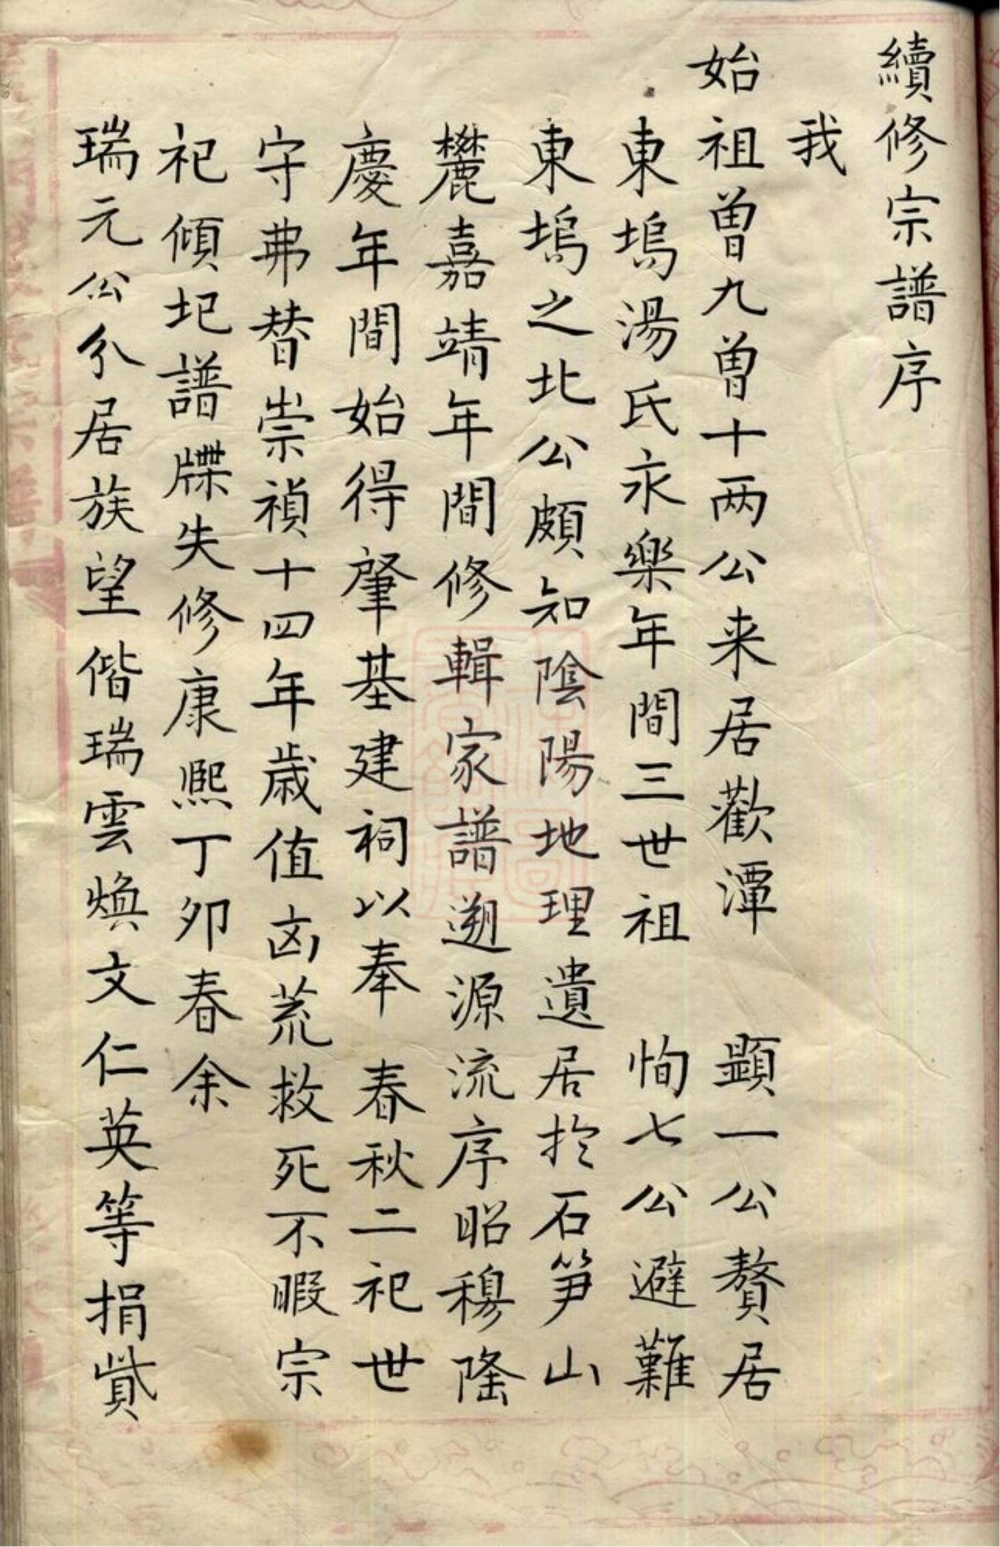 續修宗譜序
我
始祖曽九曽十两公来居歡潭 顯一公贅居
東塢湯氏永樂年間三世祖 恂七公避難
東塢之北公頗知陰陽地理遺居於石笋山
麓嘉靖年間修輯家譜遡源流序昭穆隆
慶年間始得肇基建祠以奉 春秋二祀世
守弗替崇禎十四年歳值凶荒救死不暇宗
祀傾圮譜牒失修康熙丁卯春余
瑞元公分居族望偕瑞雲煥文仁英等捐貲